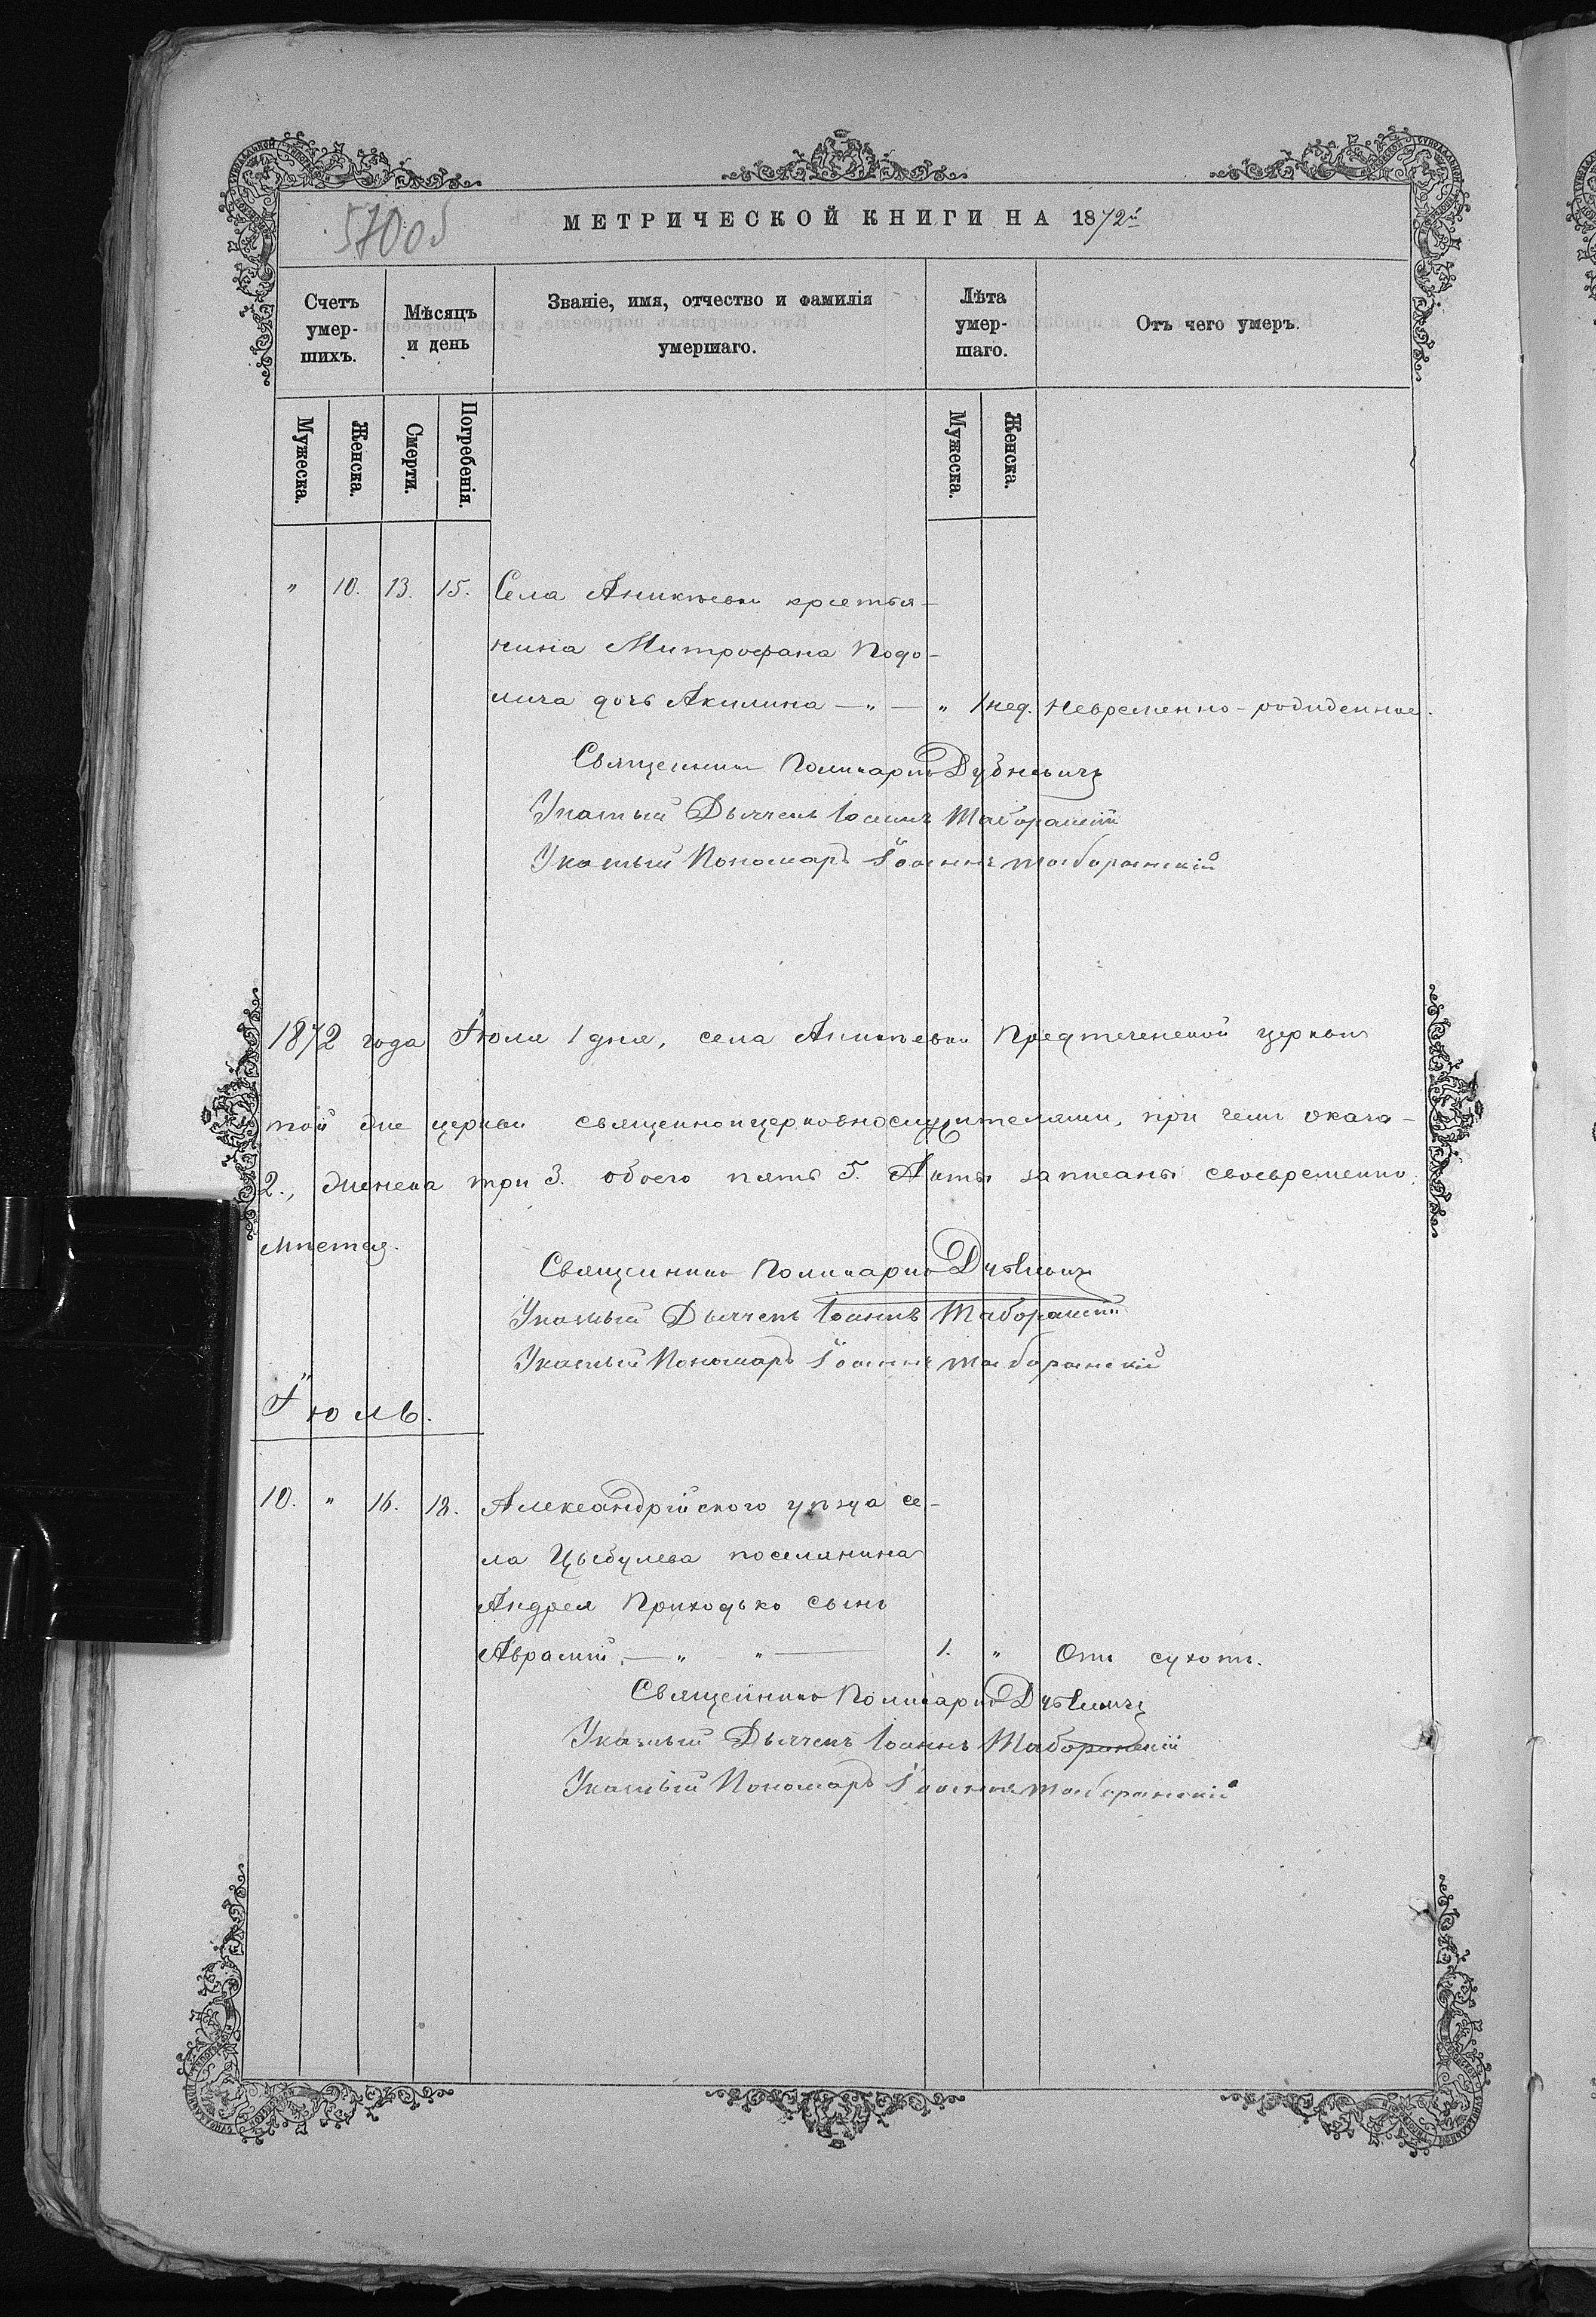 570об
МЕТРИЧЕСКОЙ КНИГИ НА 1872й
Счетъ умер-шихъ.
Мѣсяцъ и день
Званіе, имя, отчество и фамилія умершаго.
Лѣта умер-шаго.
Отъ чего умеръ.
Мужеска. Женска. Смерти. Погребенія. Мужеска. Женска.
" 10. 13. 15. Села Аникѣевки крестья-
нина Митрофана Подо-
лича дочь Акилина — " — " 1 нед. Невременно-рожденное.
Священникъ Поликарпъ
Указный Дьячекъ Іоаннъ Таборанскій
Указный Пономарь Іоаннъ Таборанскій
1872 года Іюля 1 дня, села Аникѣевки Предтеченской церкви
той же церкви священноицерковнослужителями, при чемъ оказа-
2., женска три 3. обоего пять 5. Акты записаны своевременно,
мѣстах.
Священникъ Поликарпъ
Указный Дьячекъ Іоаннъ Таборанскій
Указный Пономарь Іоаннъ Таборанскій
Іюль.
10. " 16. 18. Александрійского уѣзда се-
ла Цыбулева поселянина
Андрея Приходько сынъ
Аврамій. — " — " — 1. " Отъ сухот.
Священникъ Поликарпъ
Указный Дьячекъ Іоаннъ Таборанскій
Указный Пономарь Іоаннъ Таборанскій